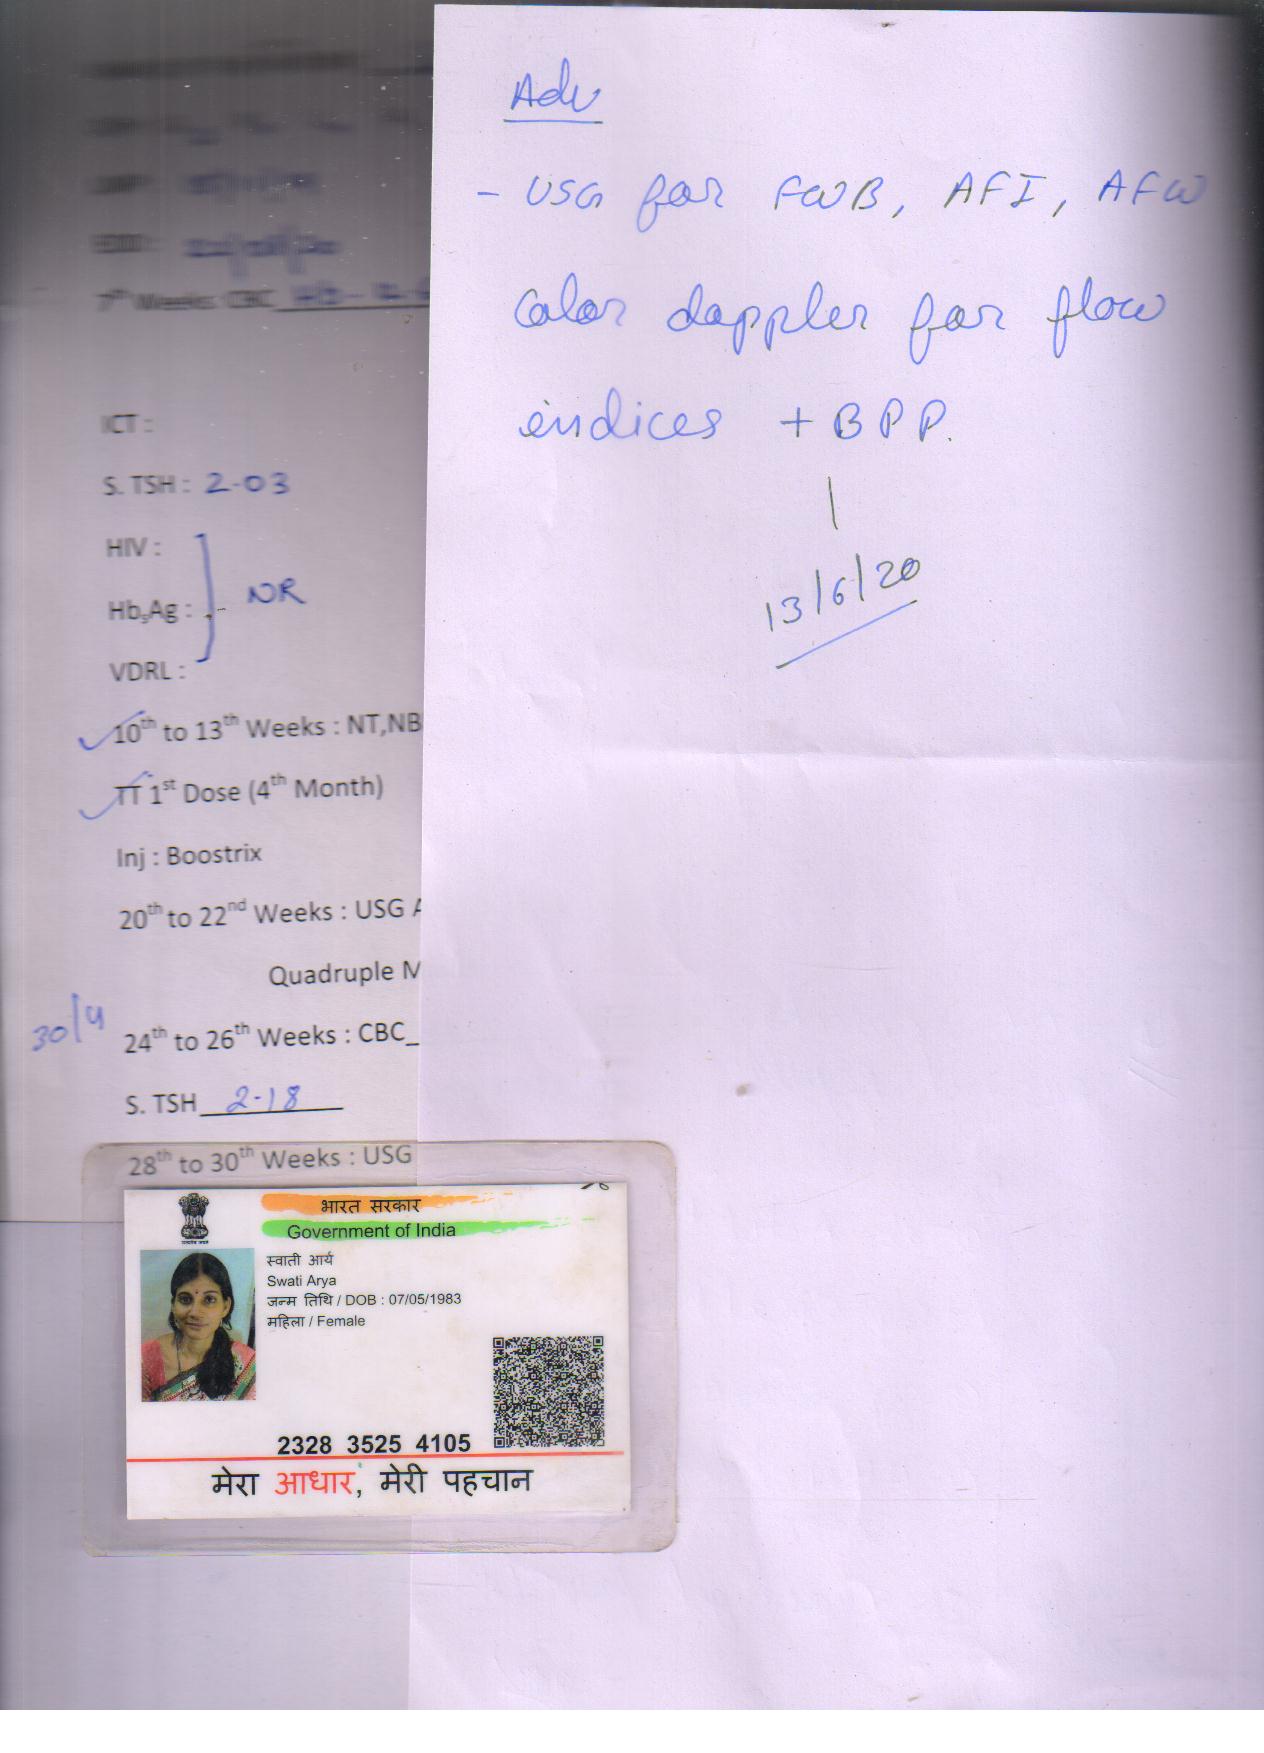 Adv
- USG for FWB, AFI, AFW
Color doppler for flow
indices + BPP.
13/6/20
7th Weeks: CBC
ICT :
S. TSH : 2-03
HIV :
HbsAg : NR
VDRL :
10th to 13th Weeks : NT,NB
TT 1st Dose (4th Month)
Inj : Boostrix
20th to 22nd Weeks : USG
Quadruple M
30/4
24th to 26th Weeks : CBC_
S. TSH 2-18
28th to 30th Weeks : USG
भारत सरकार
Government of India
स्वाती आर्य
Swati Arya
जन्म तिथि / DOB : 07/05/1983
महिला / Female
2328 3525 4105
मेरा आधार, मेरी पहचान